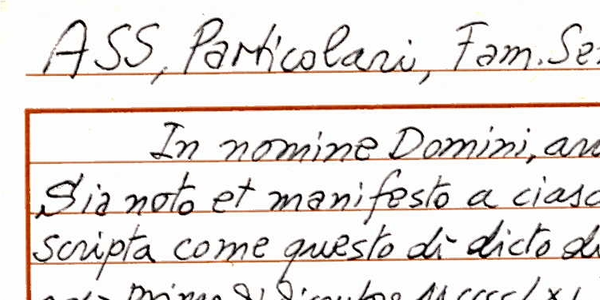 ASS, Particolari, Fam. Se
In nomine Domini, an
Sia noto et manifesto a ciasc
scripta come questo dì dicto di
primo di